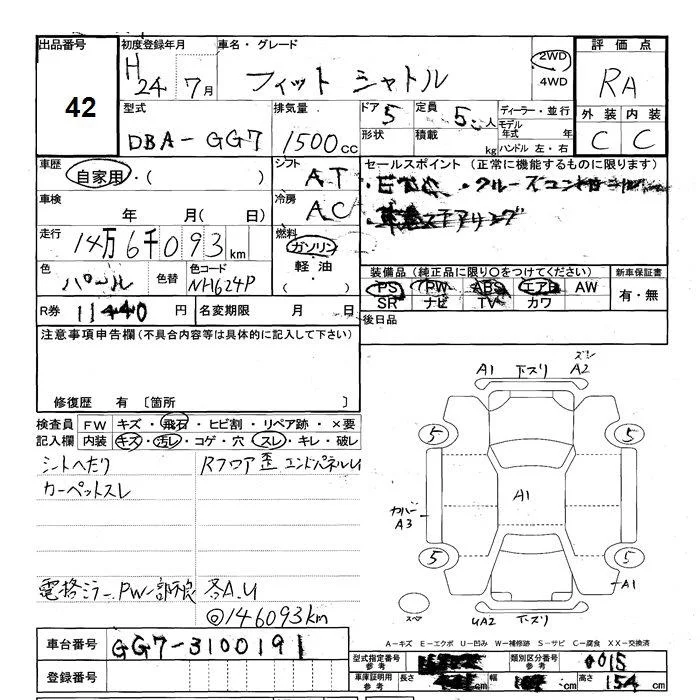 出品番号
42
初度登録年月
H24 7月
車名・グレード
フィット シャトル
2WD
4WD
評価点
RA
外装 内装
C C
型式
DBA-GG7
排気量
1500cc
ドア 5
形状
定員 5人
積載 kg
ディーラー・並行
モデル年式 年
ハンドル 左・右
車歴
自家用・( )
シフト
AT
セールスポイント (正常に機能するものに限ります)
・クルーズコントロール
ステアリング
車検
年 月( 日)
冷房
AC
走行
14万6千093km
燃料
ガソリン
軽油
( )
色
パール
色替
色コード
NH624P
装備品 (純正品に限り○をつけてください)
PS PW ABS エアB AW
SR ナビ TV カワ
新車保証書
有・無
R券 11440円
名変期限 月 日
後日品
注意事項申告欄(不具合内容等は具体的に記入して下さい)
修復歴 有 〔箇所 〕
検査員記入欄
FW キズ・飛石・ヒビ割・リペア跡・×要
内装 キズ・汚レ・コゲ・穴・スレ・キレ・破レ
シートへたり
カーペットスレ
Rフロア歪 エンドパネルU
電格ミラー、PW一部不良
各A.U
◎146093km
A1 下スリ A2
5 5
A1
カバー
A3
5 5
A1
スペア
UA2 下スリ
A-キズ E-エクボ U-凹み W-補修跡 S-サビ C-腐食 XX-交換済
車台番号 GG7-3100191
登録番号
型式指定番号 参考
類別区分番号 参考 0015
車庫証明用 参考 長さ cm 幅 cm 高さ 154cm